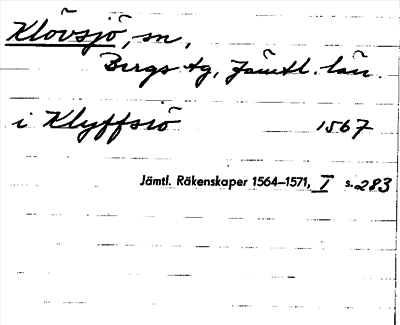 Klövsjö, sn,
Bergs tg, Jämtl. län.
i Klyffsiö 1567
Jämtl. Räkenskaper 1564–1571, I s. 283